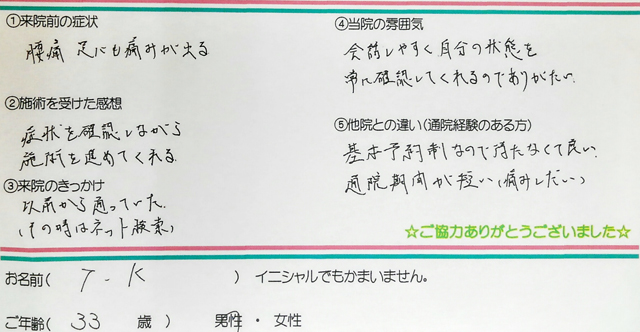 ①来院前の症状
腰痛 足にも痛みが出る
②施術を受けた感想
症状を確認しながら
施術を進めてくれる
③来院のきっかけ
以前から通っていた
(その時はネット検索)
④当院の雰囲気
会話しやすく自分の状態を
常に確認してくれるのでありがたい
⑤他院との違い(通院経験のある方)
基本予約制なので待たなくて良い
通院期間が短い(痛みしだい)
☆ご協力ありがとうございました☆
お名前( T.K ) イニシャルでもかまいません。
ご年齢( 33 歳 ) 男性 ・ 女性